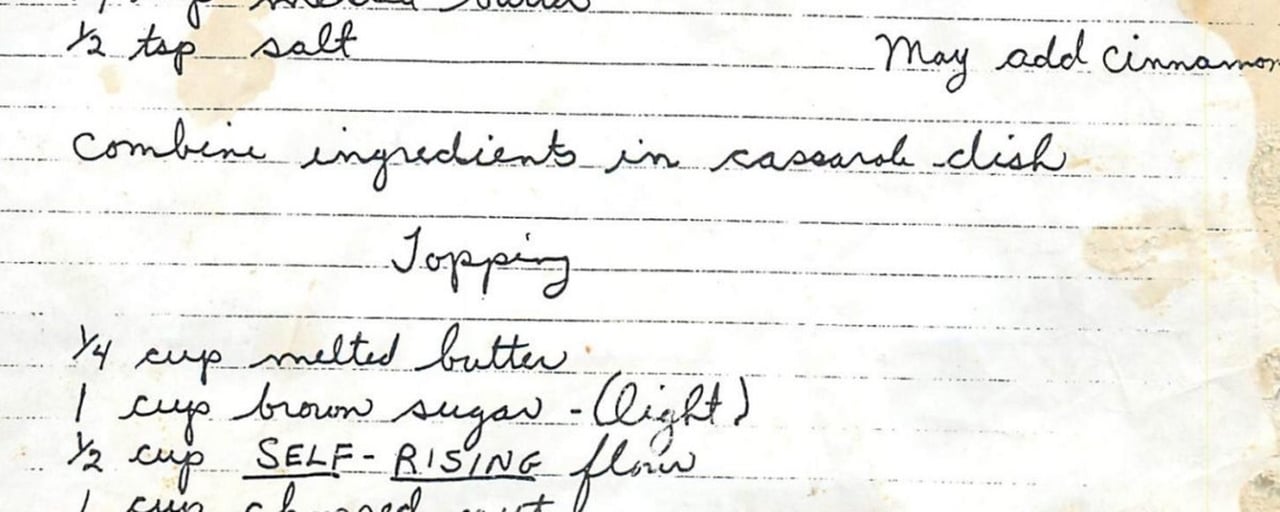 melted butter
½ tsp salt May add cinnamon
combine ingredients in cassarole dish
Topping
¼ cup melted butter
1 cup brown sugar - (light)
½ cup SELF-RISING flour
1 cup chopped